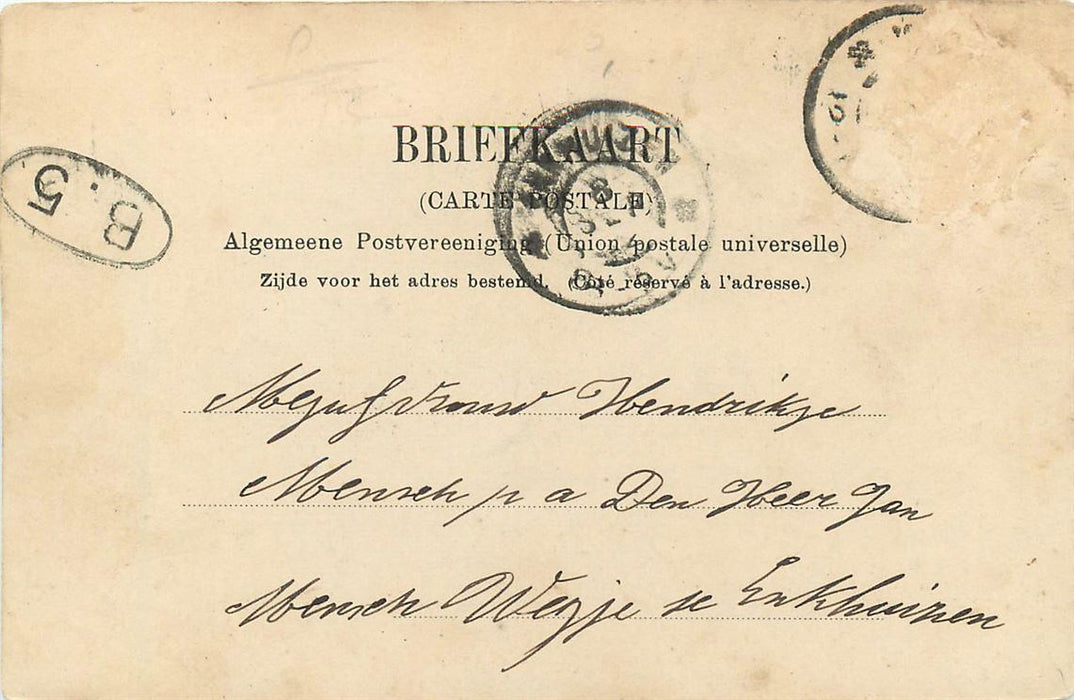 BRIEFKAART
(CARTE POSTALE)
Algemeene Postvereeniging (Union postale universelle)
Zijde voor het adres bestemd. (Côté réservé à l'adresse.)
B. 5
Mejufvrouw Hendrikje
Mensch p a Den Heer Jan
Mensch Wegje te Enkhuizen